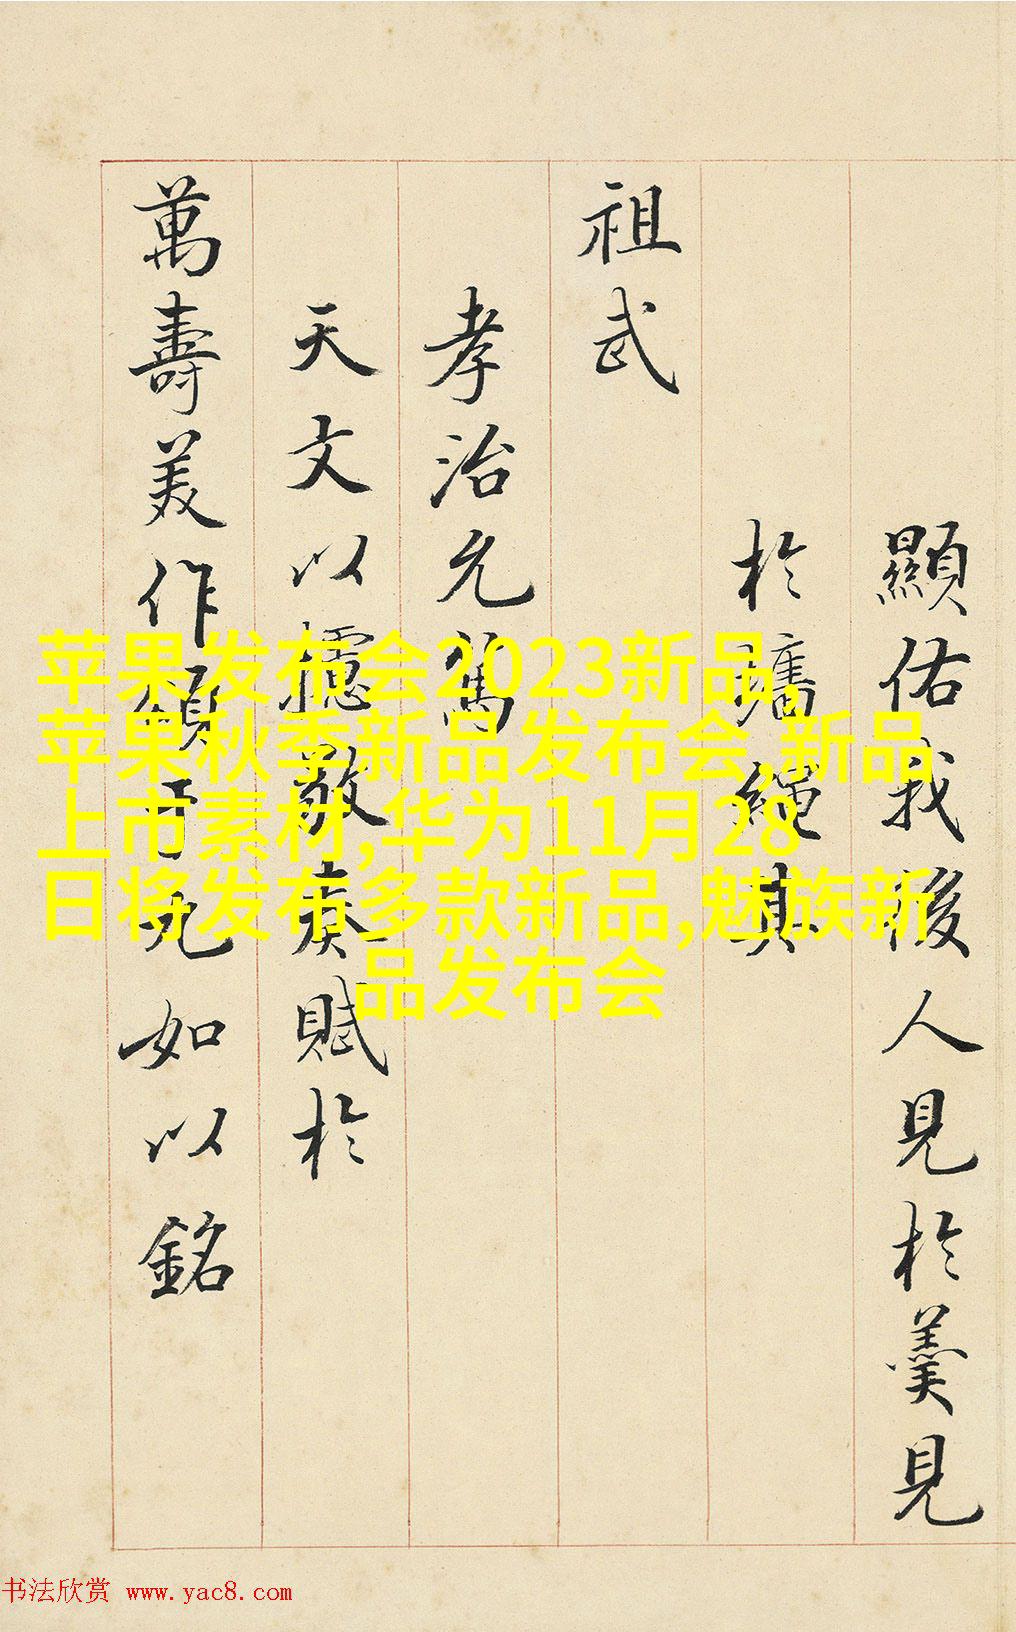 顯佑我後人見於羹見
於墻繩其
祖武
孝治允篤
天文以攄敬奏賦於
萬壽美作頌于九如以銘
苹果发布会2023新品,
苹果秋季新品发布会,新品
上市素材,华为11月28
日将发布多款新品,魅族新
品发布会
书法欣赏 www.yac8.com